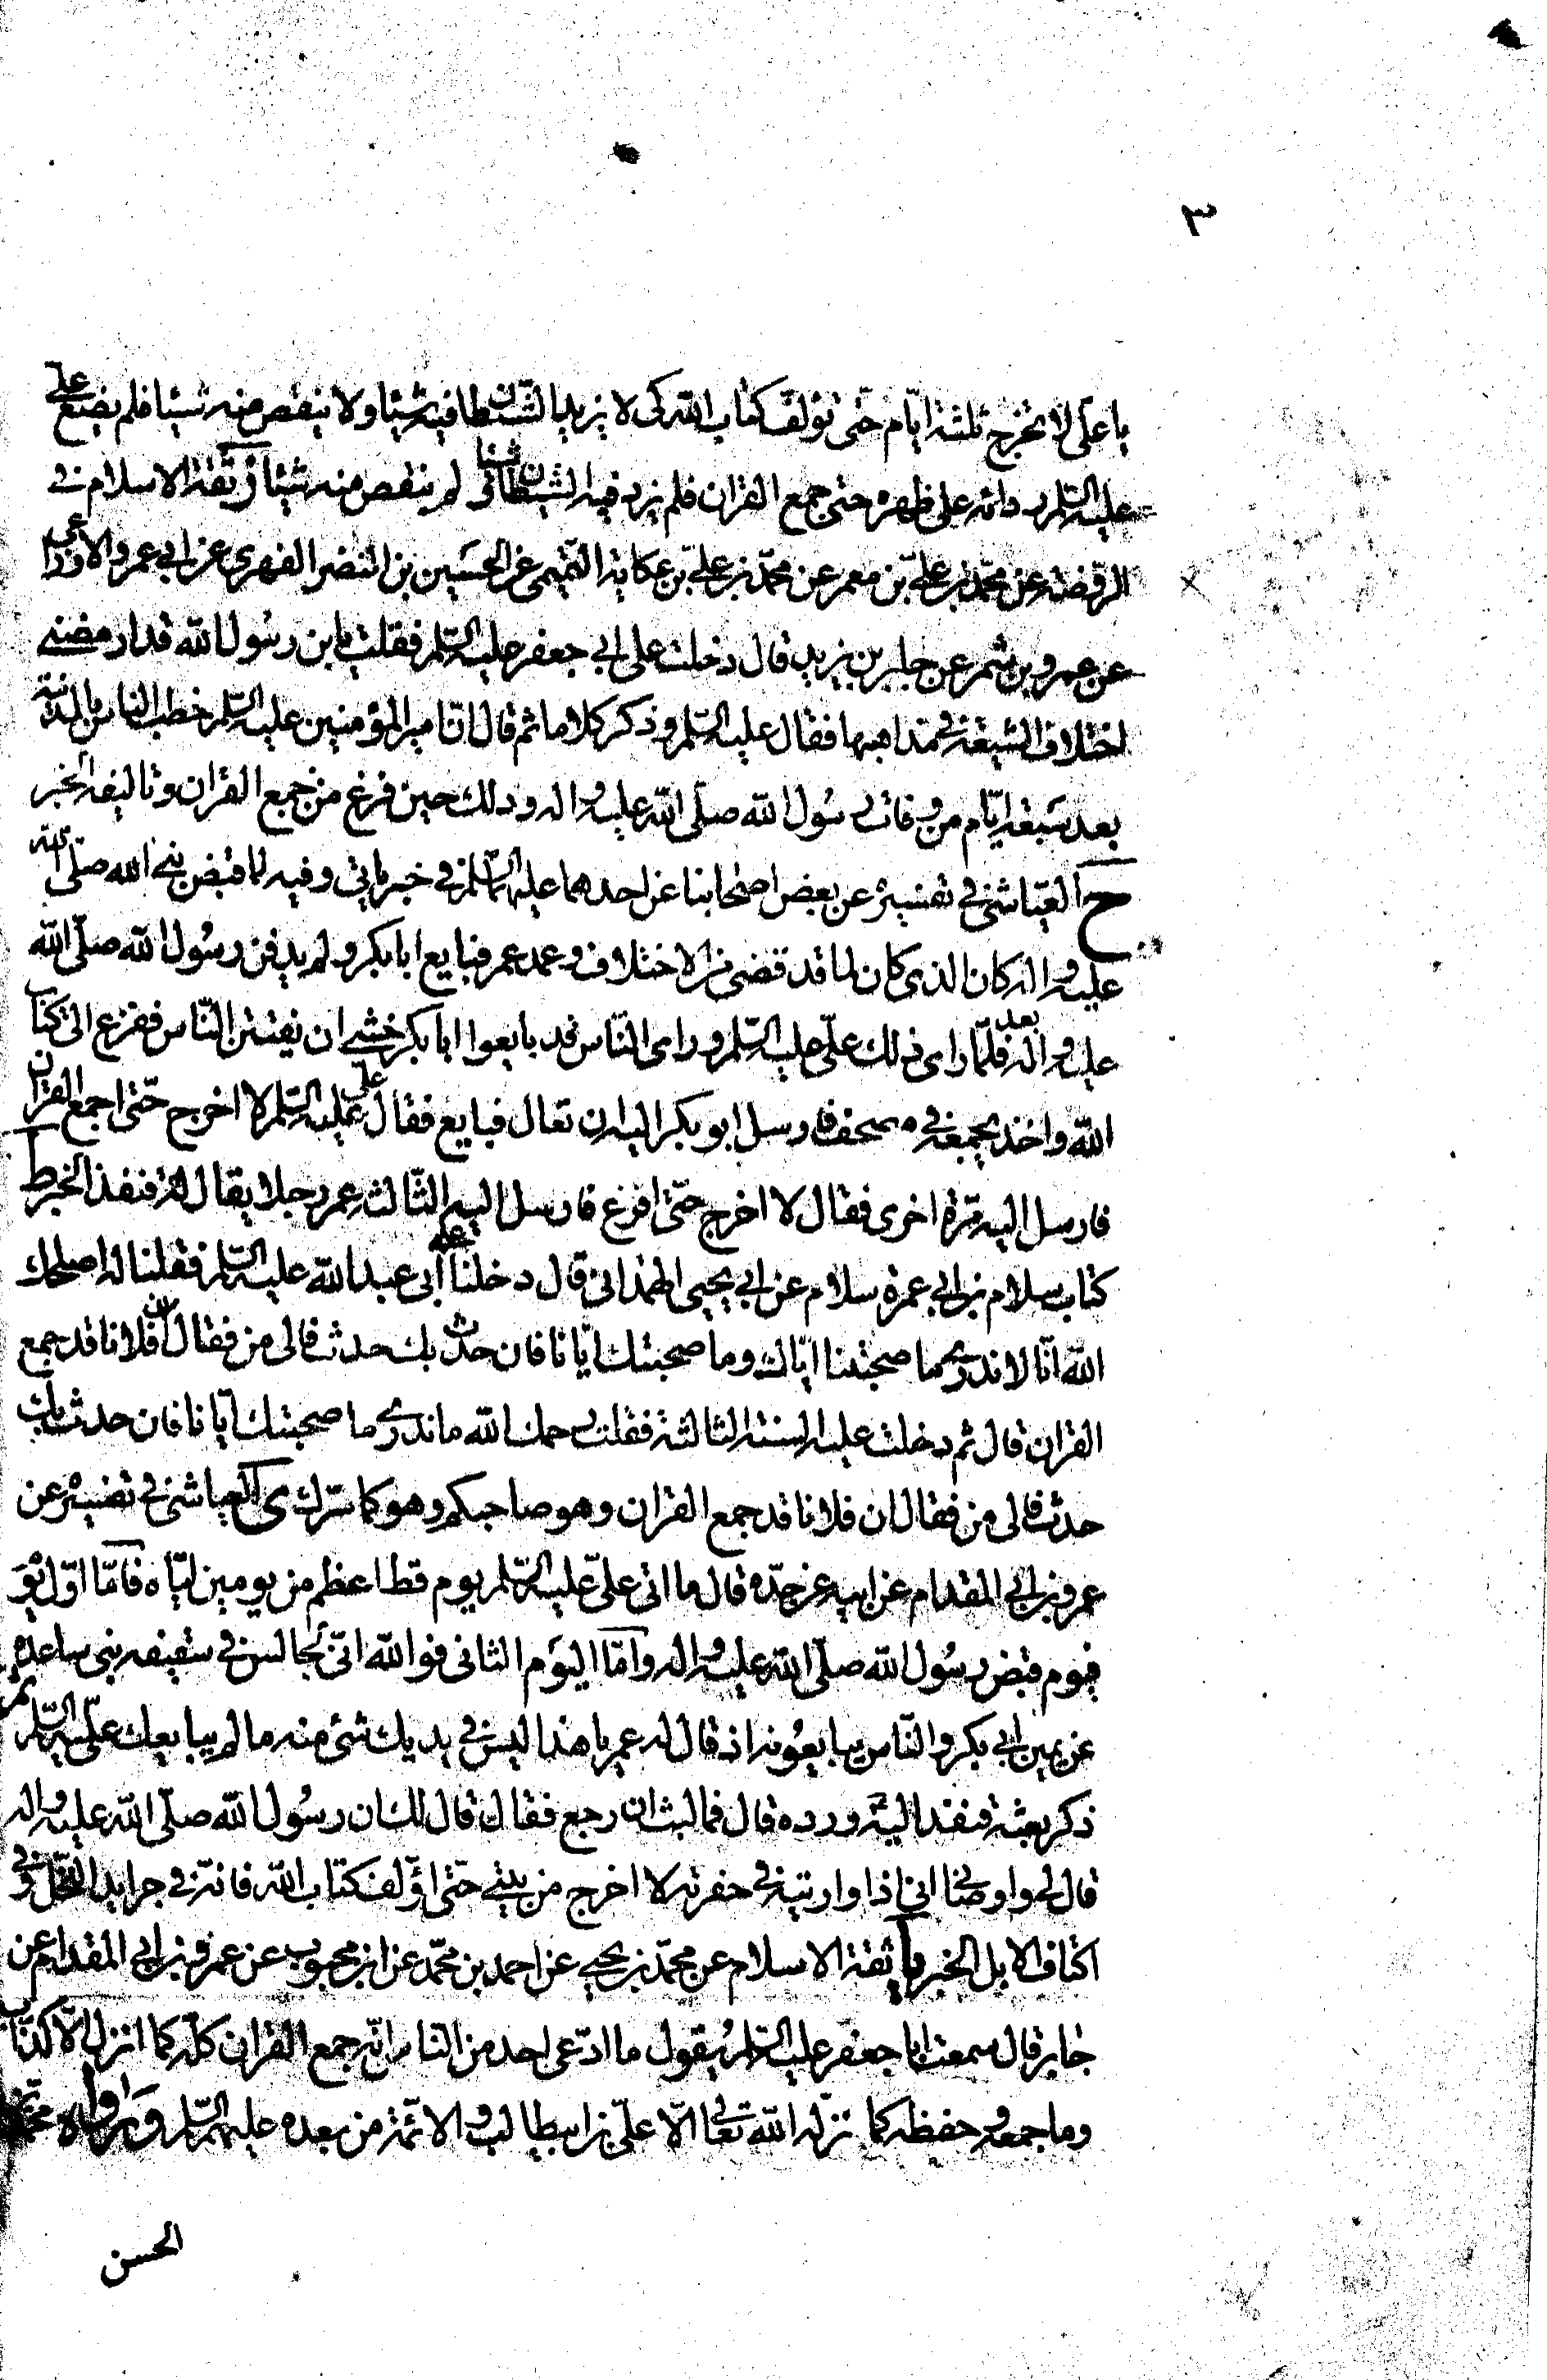 ٣
يا علي لا تخرج ثلثة ايّام حتّى تؤلف كتاب الله كى لا يزيد الشيطان فيه شيئا ولا ينقص منه شيئا فلم يضع علي
عليه السّلم رداءه على ظهره حتى جمع القران فلم يزد فيه الشيطان شيئا ولم ينقص منه شيئا ز ثقة الاسلام في
الروضة عن محمّد بن عليّ بن معمر عن محمّد بن عليّ بن عكاية التميمي عن الحسَين بن النضر الفهري عن ابي عمرو الاوزاعي
عن عمرو بن شمر عن جابر بن يزيد قال دخلت على ابي جعفر عليه السّلم فقلت يا بن رسُول الله قد ارمضني
اختلاف الشيعة في مذاهبها فقال عليه السّلم وذكر كلاما ثم قال انّ امير المؤمنين عليه السّلم خطب الناس بالمدينة
بعد سَبعة ايّام من وفات رسُول الله صلّى الله عليه واله وذلك حين فرغ من جمع القران وتاليفه الخبر
ح العيّاشي في تفسيره عن بعض اصحابنا عن احدهما عليهما السّلم في خبر ياتي وفيه لما قبض نبي الله صلّى الله
عليه واله كان الذي كان لما قد قضى من الاختلاف وعمد عمر فبايع ابا بكر ولم يدفن رسُول الله صلّى الله
عليه واله بعد فلمّا راى ذلك عليّ عليه السّلم وراى النّاس قد بايعوا ابا بكر خشي ان يفتتن النّاس ففزع الى كتاب
الله واخذ يجمعه في مصحف فارسل ابو بكر اليه ان تعال فبايع فقال علي عليه السّلم لا اخرج حتّى اجمع القران
فارسل اليه مرّة اخرى فقال لا اخرج حتّى افرغ فارسل اليه الثّالثة عمر رجلا يقال له قنفذ الخبر ط
كتاب سلام بن ابي عمرة سلام عن ابي يحيى الهمذاني قال دخلنا على أبى عبد الله عليه السّلم فقلنا له اصلحك
الله انّا لا ندري ما صحبتنا ايّاك وما صحبتك ايّانا فان حدث بك حدث فالى من فقال ان فلانا قد جمع
القران قال ثم دخلت عليه السنة الثالثة فقلت رحمك الله ما ندري ما صحبتك ايّانا فان حدث بك
حدث فالى من فقال ان فلانا قد جمع القران وهو صاحبكم وهو كما سرّك ى العياشي في تفسيره عن
عمرو بن ابي المقدام عن ابيه عن جدّه قال ما اتى على عليّ عليه السّلم يوم قط اعظم من يومين اتياه فأمّا اوّل يوَم
فيوم قبض رسُول الله صلّى الله عليه واله وامّا اليَوم الثانى فوالله انّي لجالس في سقيفه بنى ساعده
عن يمين ابي بكر والنّاس يبايعُونه اذ قال له عمر يا هذا ليس في يديك شئ منه ما لم يبايعك عليّ عليه السّلم ثم
ذكر بعثة قنفذ اليه ورده قال فما لبث ان رجع فقال قال لك ان رسُول الله صلّى الله عليه واله
قال لي واوصاني اني اذا واريته في حفرته لا اخرج من بيتي حتّى اؤلف كتاب الله فانه في جرايد النّخل وفي
اكتاف الابل الخبر يا ثقة الاسلام عن محمّد بن يحيى عن احمد بن محمّد عن ابن محبوب عن عمرو بن ابي المقدام عن
جابر قال سمعت ابا جعفر عليه السّلم يقول ما ادّعى احد من الناس انّه جمع القران كلّه كما انزل الّا كذّاب
وما جمعه وحفظه كما نزله الله تعالى الّا عليّ بن ابيطالب والائمّة من بعده عليهم السّلم ورواه محمّد
الحسن